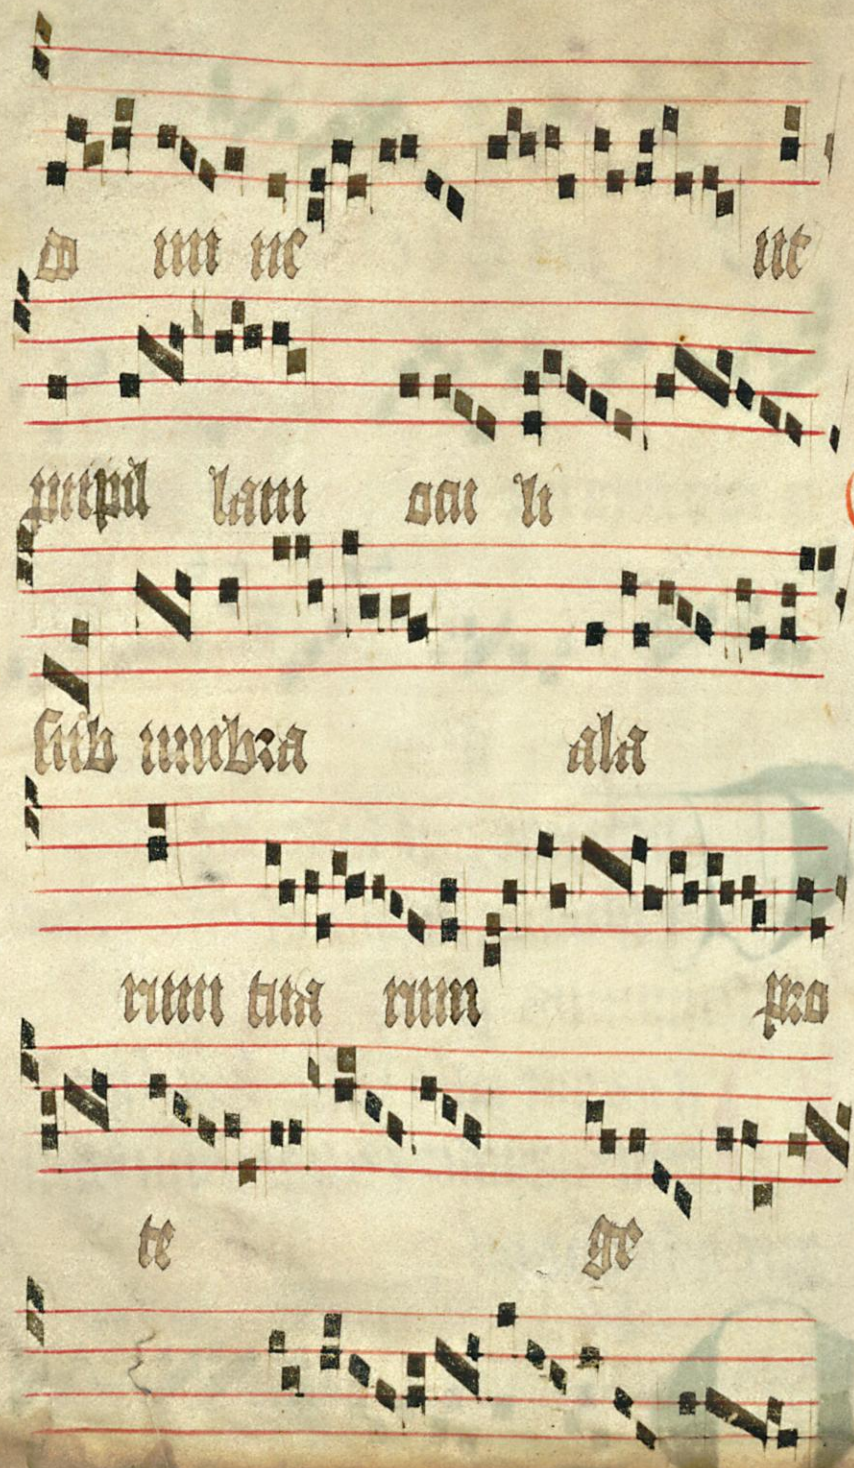 o mi ne ut
pupil lam ocu li
sub umbra ala
rum tua rum pro
te ge